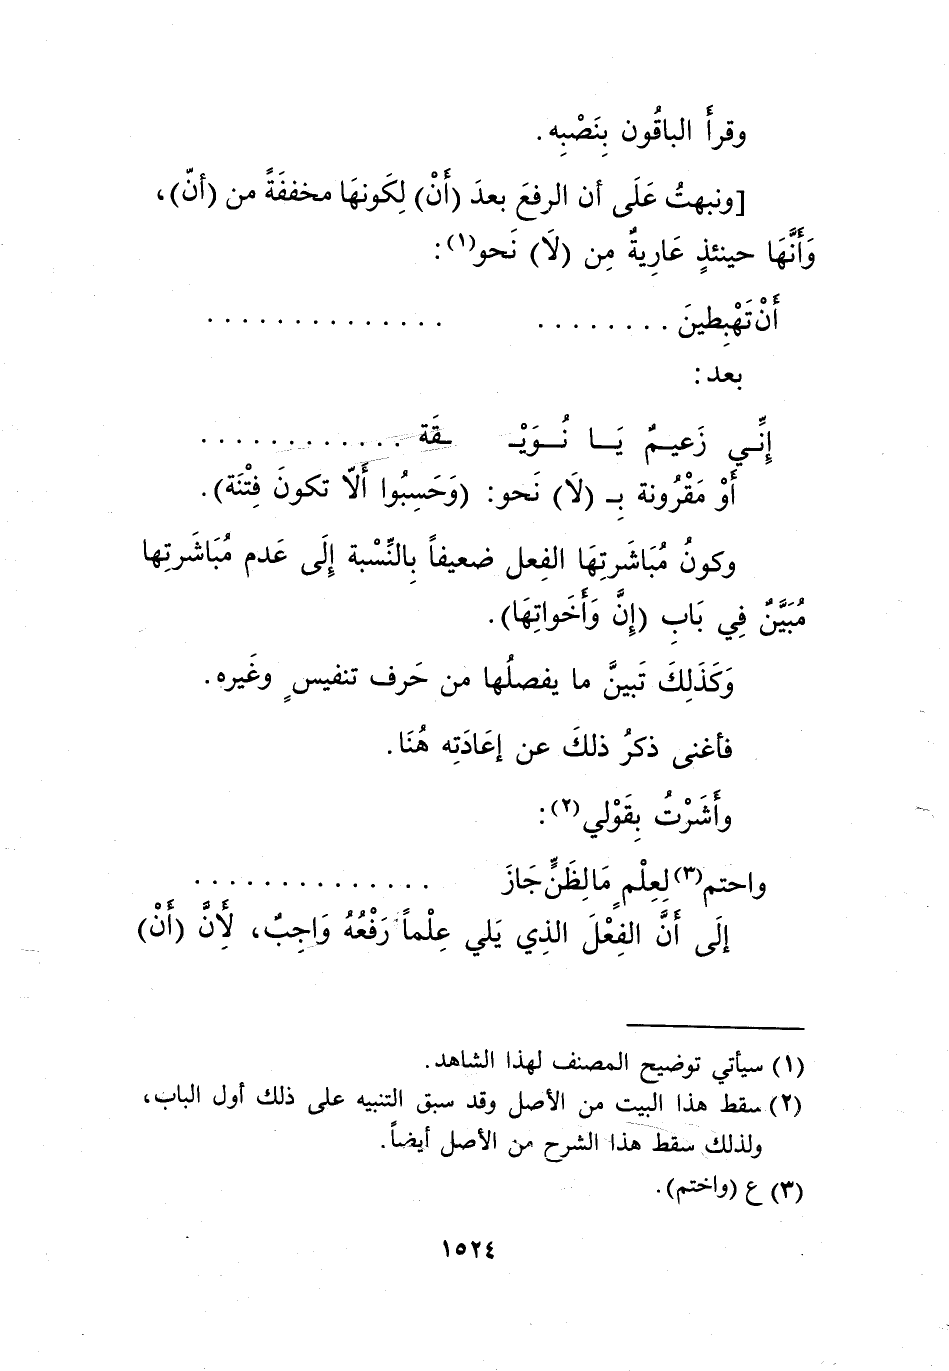 وقرأَ الباقُون بِنَصْبِه.
[ونبهتُ عَلَى أن الرفعَ بعدَ (أَنْ) لِكَونهَا مخففَةً من (أنّ)،
وَأَنَّهَا حينئذٍ عَارِيةٌ مِن (لَا) نَحو(١):
أَنْ تَهْبِطينَ ........ ..............
بعد:
إِنِّـي زَعيـمٌ يَــا نُــوَيْـ ـقَة ............
أوْ مَقْرُونة بِـ (لَا) نَحو: (وَحَسِبُوا أَلّا تكونَ فِتْنَة).
وكونُ مُبَاشَرتِهَا الفِعل ضعيفاً بِالنِّسْبة إِلَى عَدم مُبَاشَرتِها
مُبَيَّنٌ فِي بَابِ (إِنَّ وَأَخَواتِهَا).
وَكَذَلِكَ تَبينَّ ما يفصلُها من حَرف تنفيسٍ وغَيره.
فأغنى ذكرُ ذلكَ عن إعَادَتِه هُنَا.
وأَشَرْتُ بِقَوْلي(٢):
واحتم(٣) لِعِلْمٍ مَا لِظَنٍّ جَازَ ..............
إلَى أَنَّ الفِعْلَ الذِي يَلي عِلْماً رَفْعُهُ وَاجِبٌ، لأِنَّ (أَنْ)
(١) سيأتي توضيح المصنف لهذا الشاهد.
(٢) سقط هذا البيت من الأصل وقد سبق التنبيه على ذلك أول الباب،
ولذلك سقط هذا الشرح من الأصل أيضاً.
(٣) ع (واختم).
١٥٢٤